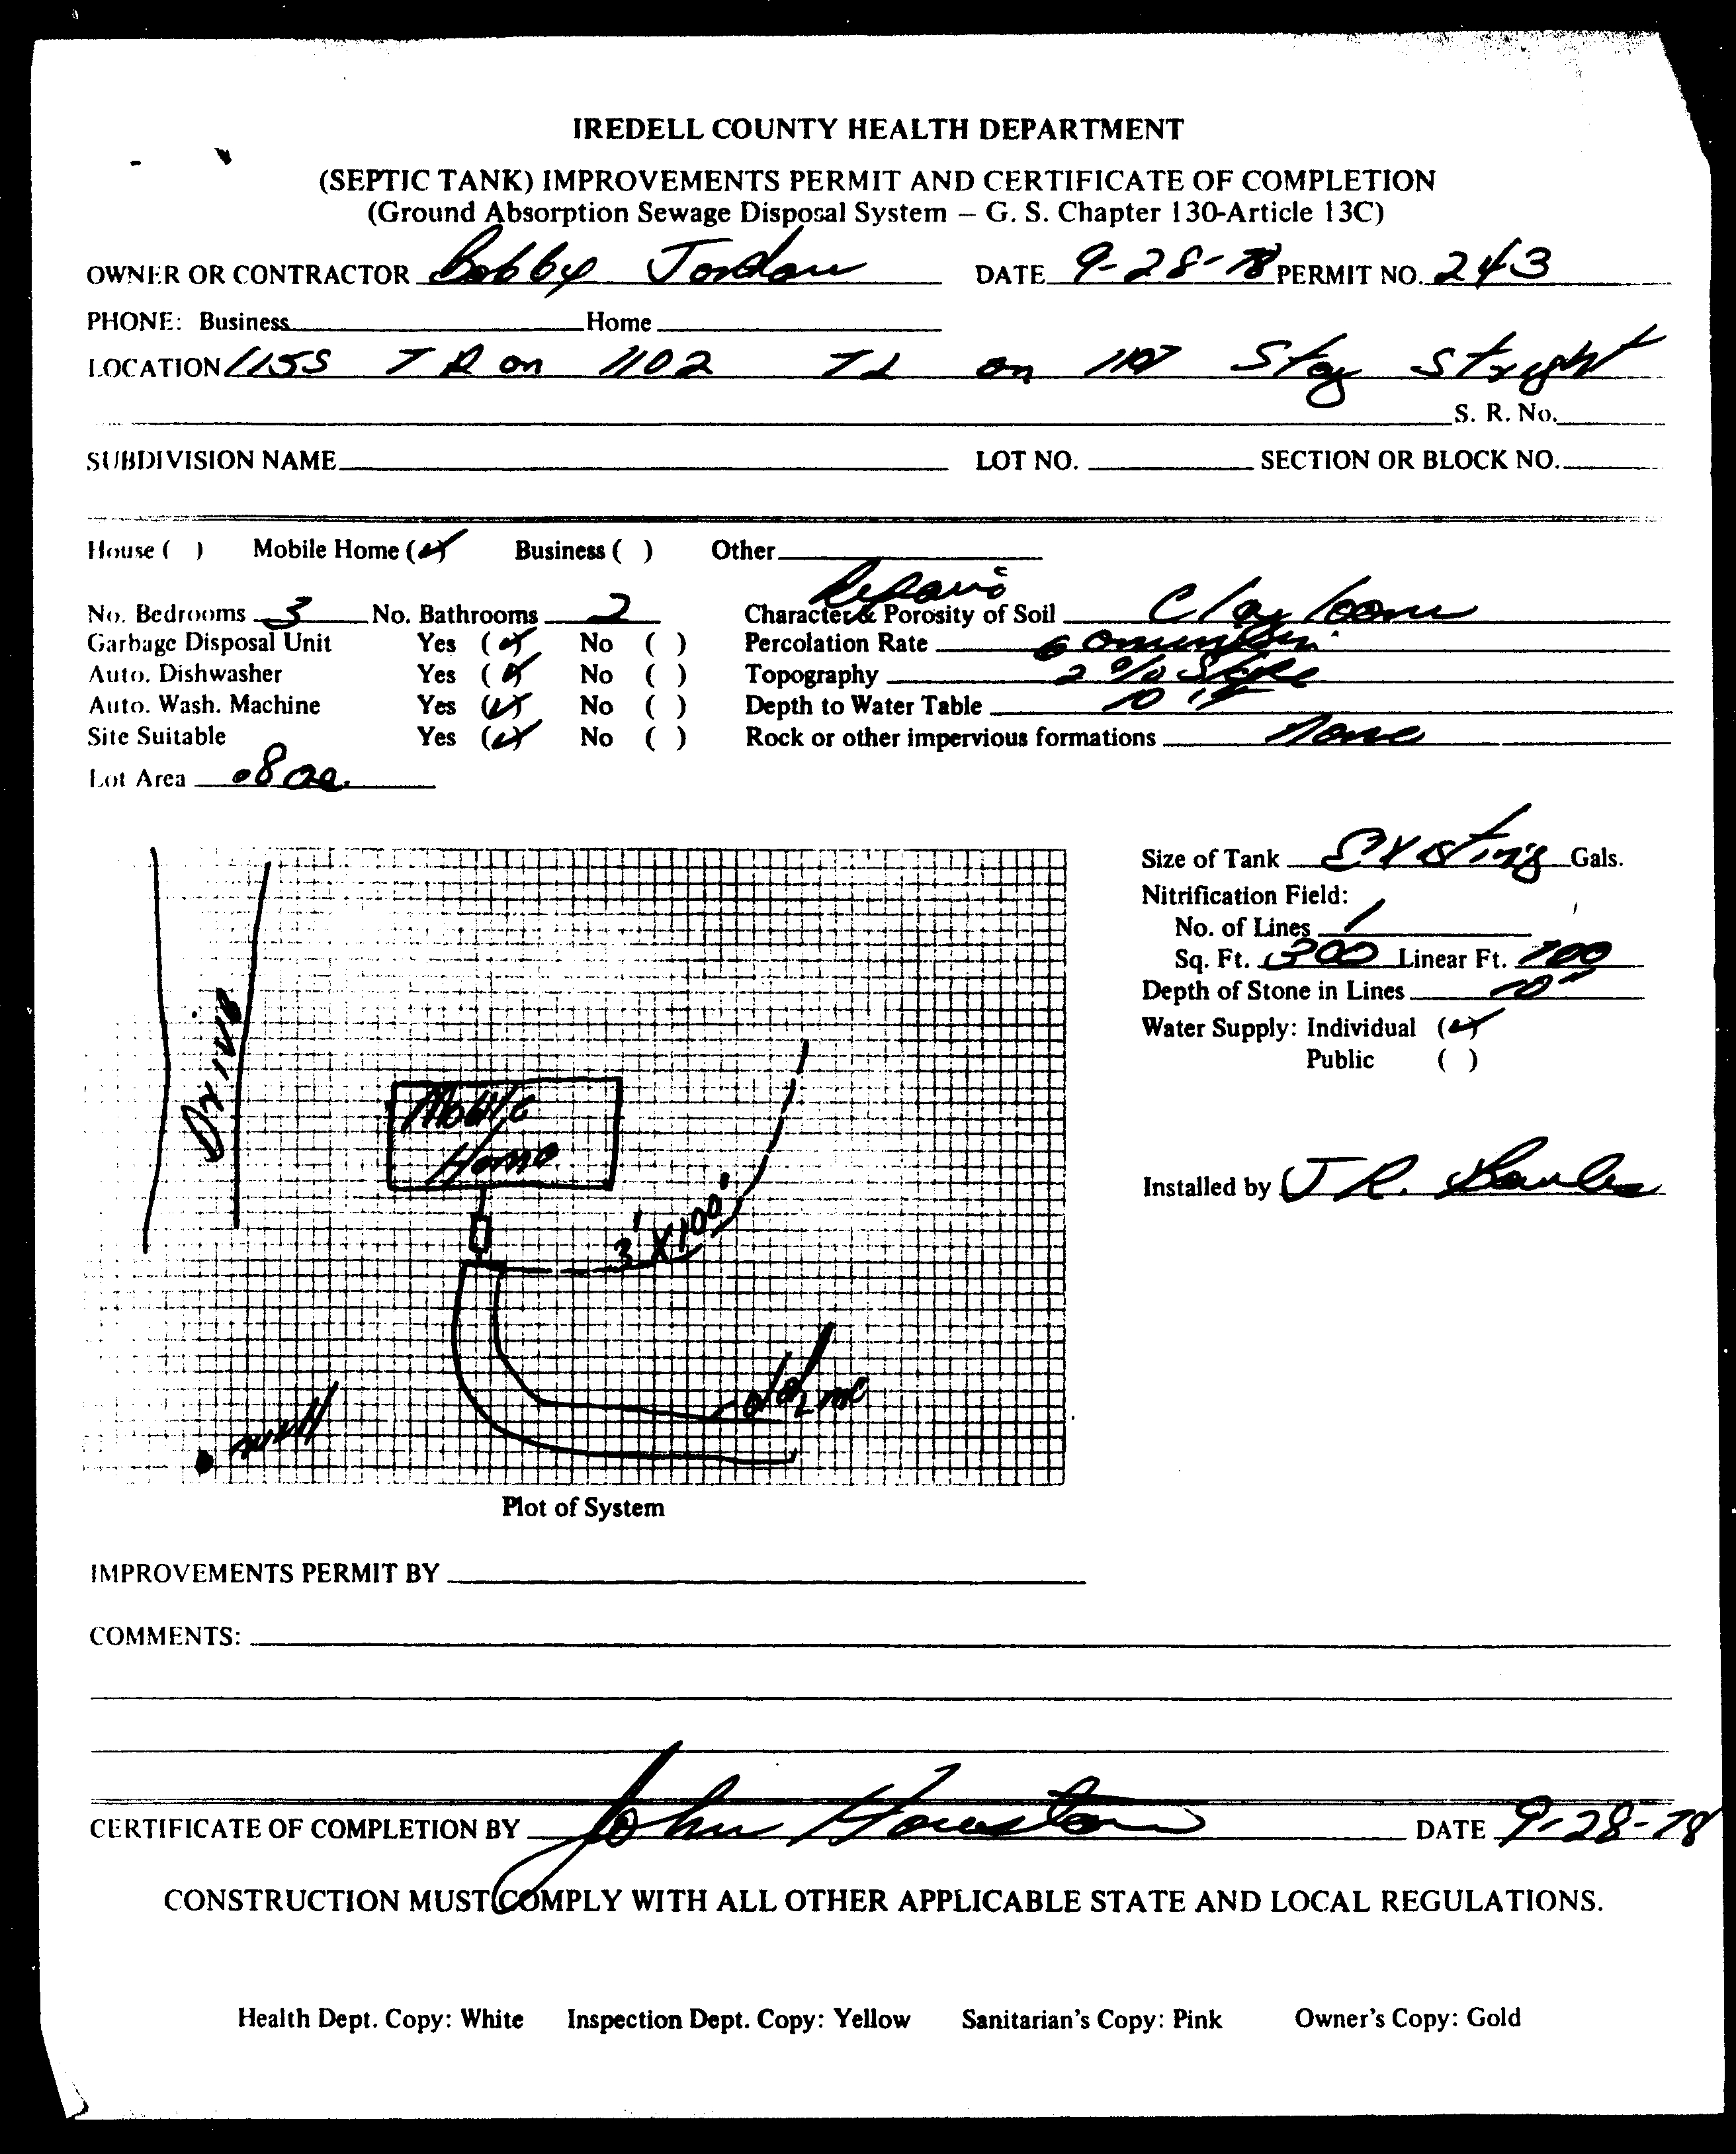 IREDELL COUNTY HEALTH DEPARTMENT
(SEPTIC TANK) IMPROVEMENTS PERMIT AND CERTIFICATE OF COMPLETION
(Ground Absorption Sewage Disposal System — G. S. Chapter 130-Article 13C)
OWNER OR CONTRACTOR Bobby Jordan DATE 9-28-78 PERMIT NO. 243
PHONE: Business Home
LOCATION 115S T R on 1102 T L on 1107 Stay Stright
S. R. No.
SUBDIVISION NAME LOT NO. SECTION OR BLOCK NO.
House ( ) Mobile Home (✓) Business ( ) Other
Repair
No. Bedrooms 3 No. Bathrooms 2 Character & Porosity of Soil Clay loam
Garbage Disposal Unit Yes (✓) No ( ) Percolation Rate 60 min/in.
Auto. Dishwasher Yes (✓) No ( ) Topography 2 % Slope
Auto. Wash. Machine Yes (✓) No ( ) Depth to Water Table
Site Suitable Yes (✓) No ( ) Rock or other impervious formations None
Lot Area .8 ac.
Size of Tank Existing Gals.
Nitrification Field:
No. of Lines 1
Sq. Ft. 300 Linear Ft. 100
Depth of Stone in Lines
Water Supply: Individual (✓)
Public ( )
Installed by J R.
Drive
Mobile
Home
3' X 100'
old line
well
Plot of System
IMPROVEMENTS PERMIT BY
COMMENTS:
CERTIFICATE OF COMPLETION BY John Houston DATE 9-28-78
CONSTRUCTION MUST COMPLY WITH ALL OTHER APPLICABLE STATE AND LOCAL REGULATIONS.
Health Dept. Copy: White Inspection Dept. Copy: Yellow Sanitarian's Copy: Pink Owner's Copy: Gold